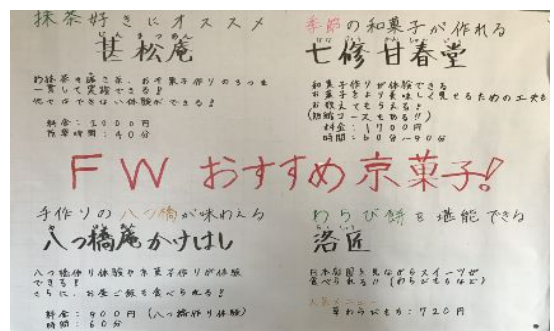 抹茶好きにオススメ
甚松庵
お抹茶を
お菓子作りの3つを
一貫して実践できる!
他ではできない体験ができる!
料金:2000円
所要時間:40分
季節の和菓子が作れる
七條甘春堂
和菓子作りが体験できる
お菓子をより美味しく見せるための工夫も
お教えてもらえる!
(短縮コースもある!!)
料金:1700円
時間:60分~90分
FW おすすめ京菓子!
手作りの八つ橋が味わえる
八つ橋庵かけはし
八つ橋作り体験や京菓子作りが体験
できる!
さらに、お昼ご飯も食べられる!
料金:900円(八つ橋作り体験)
時間:60分
わらび餅を堪能できる
洛匠
日本庭園を見ながらスイーツが
食べられる!!(わらびもちなど)
人気メニュー
草わらびもち:720円